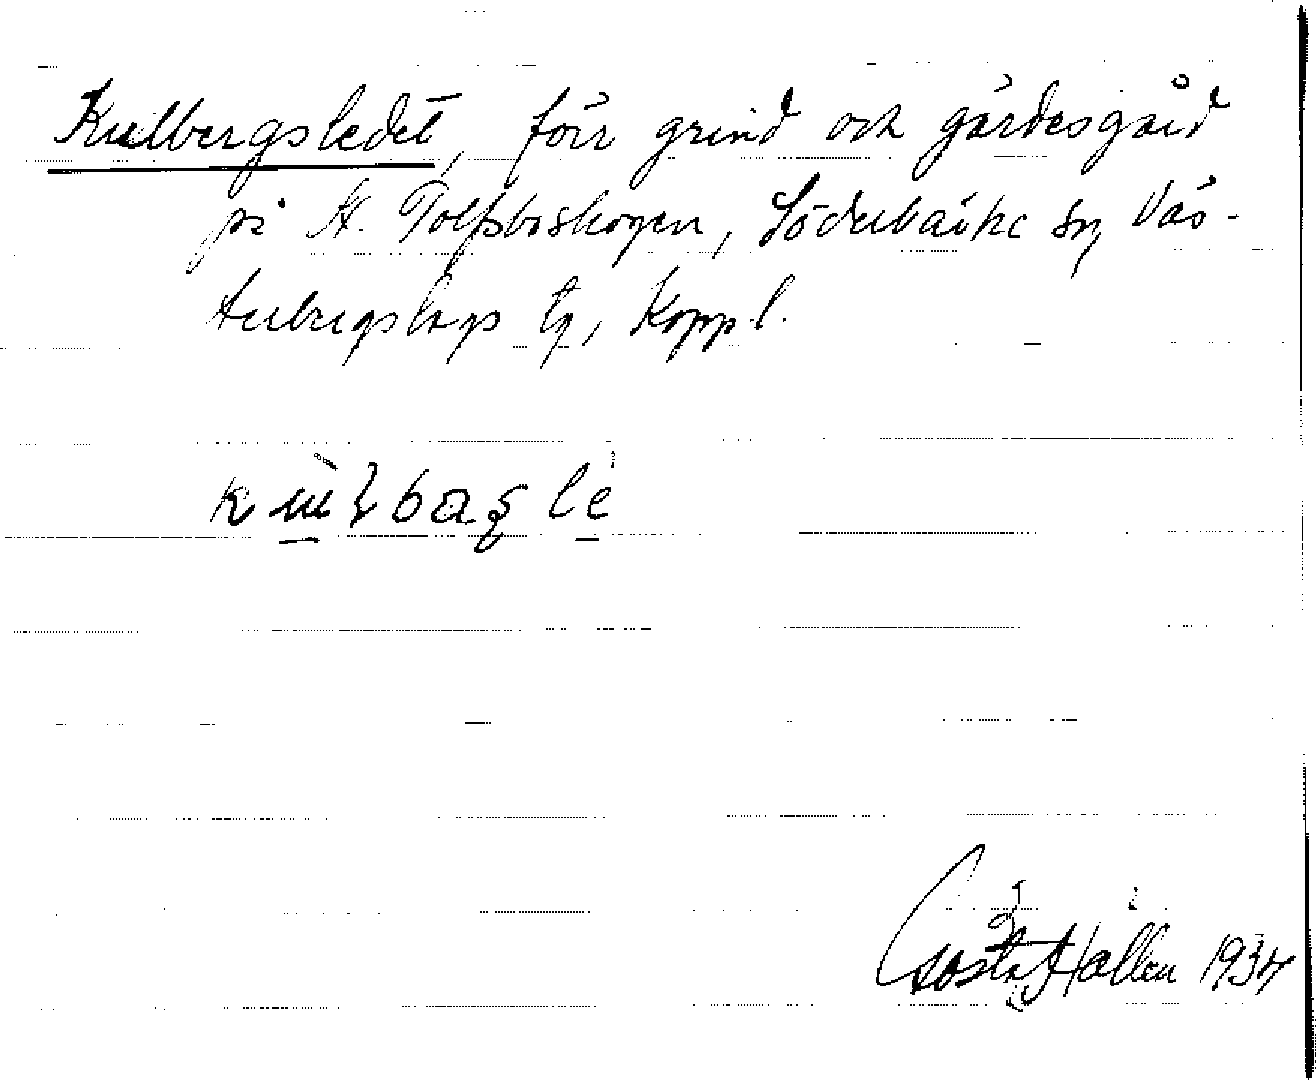 Kullbergsledet, förr grind och gärdesgård
på St. Tolfsboskogen, Söderbärke sn, Väs-
terbergslags tg, Kopp. l.
Gösta Hallén 1934